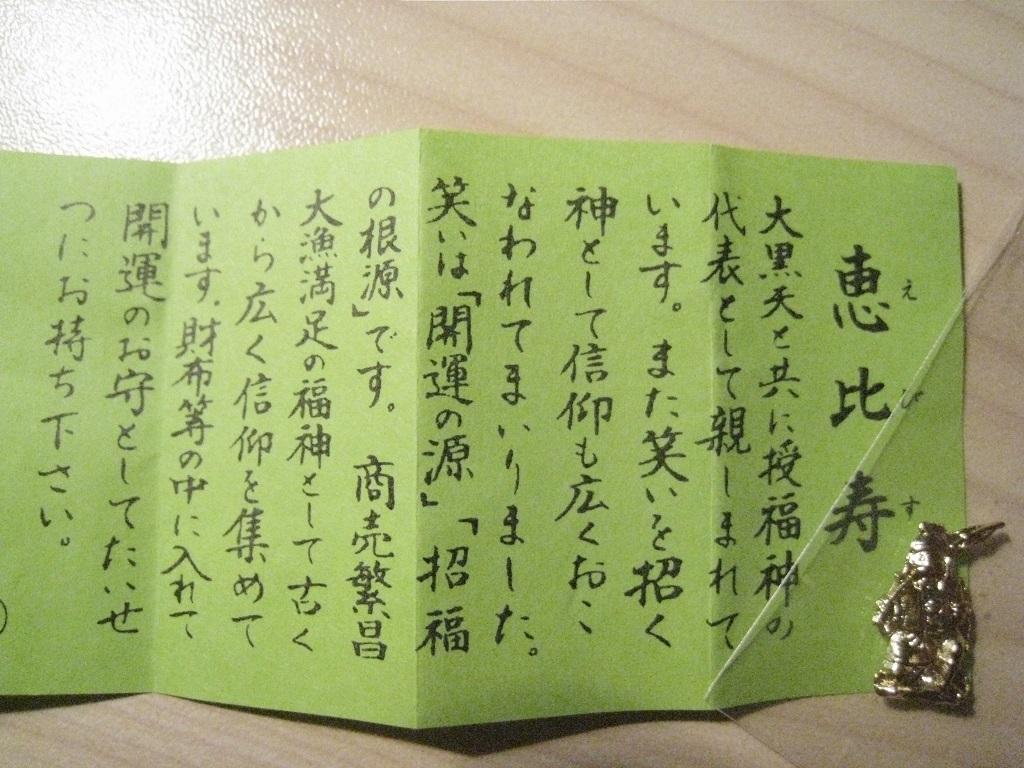 恵比寿
えびす
大黒天と共に授福神の
代表として親しまれて
います。また笑いを招く
神として信仰も広くおこ
なわれてまいりました。
笑いは「開運の源」「招福
の根源」です。商売繁昌
大漁満足の福神として古く
から広く信仰を集めて
います。財布等の中に入れて
開運のお守としてたいせ
つにお持ち下さい。